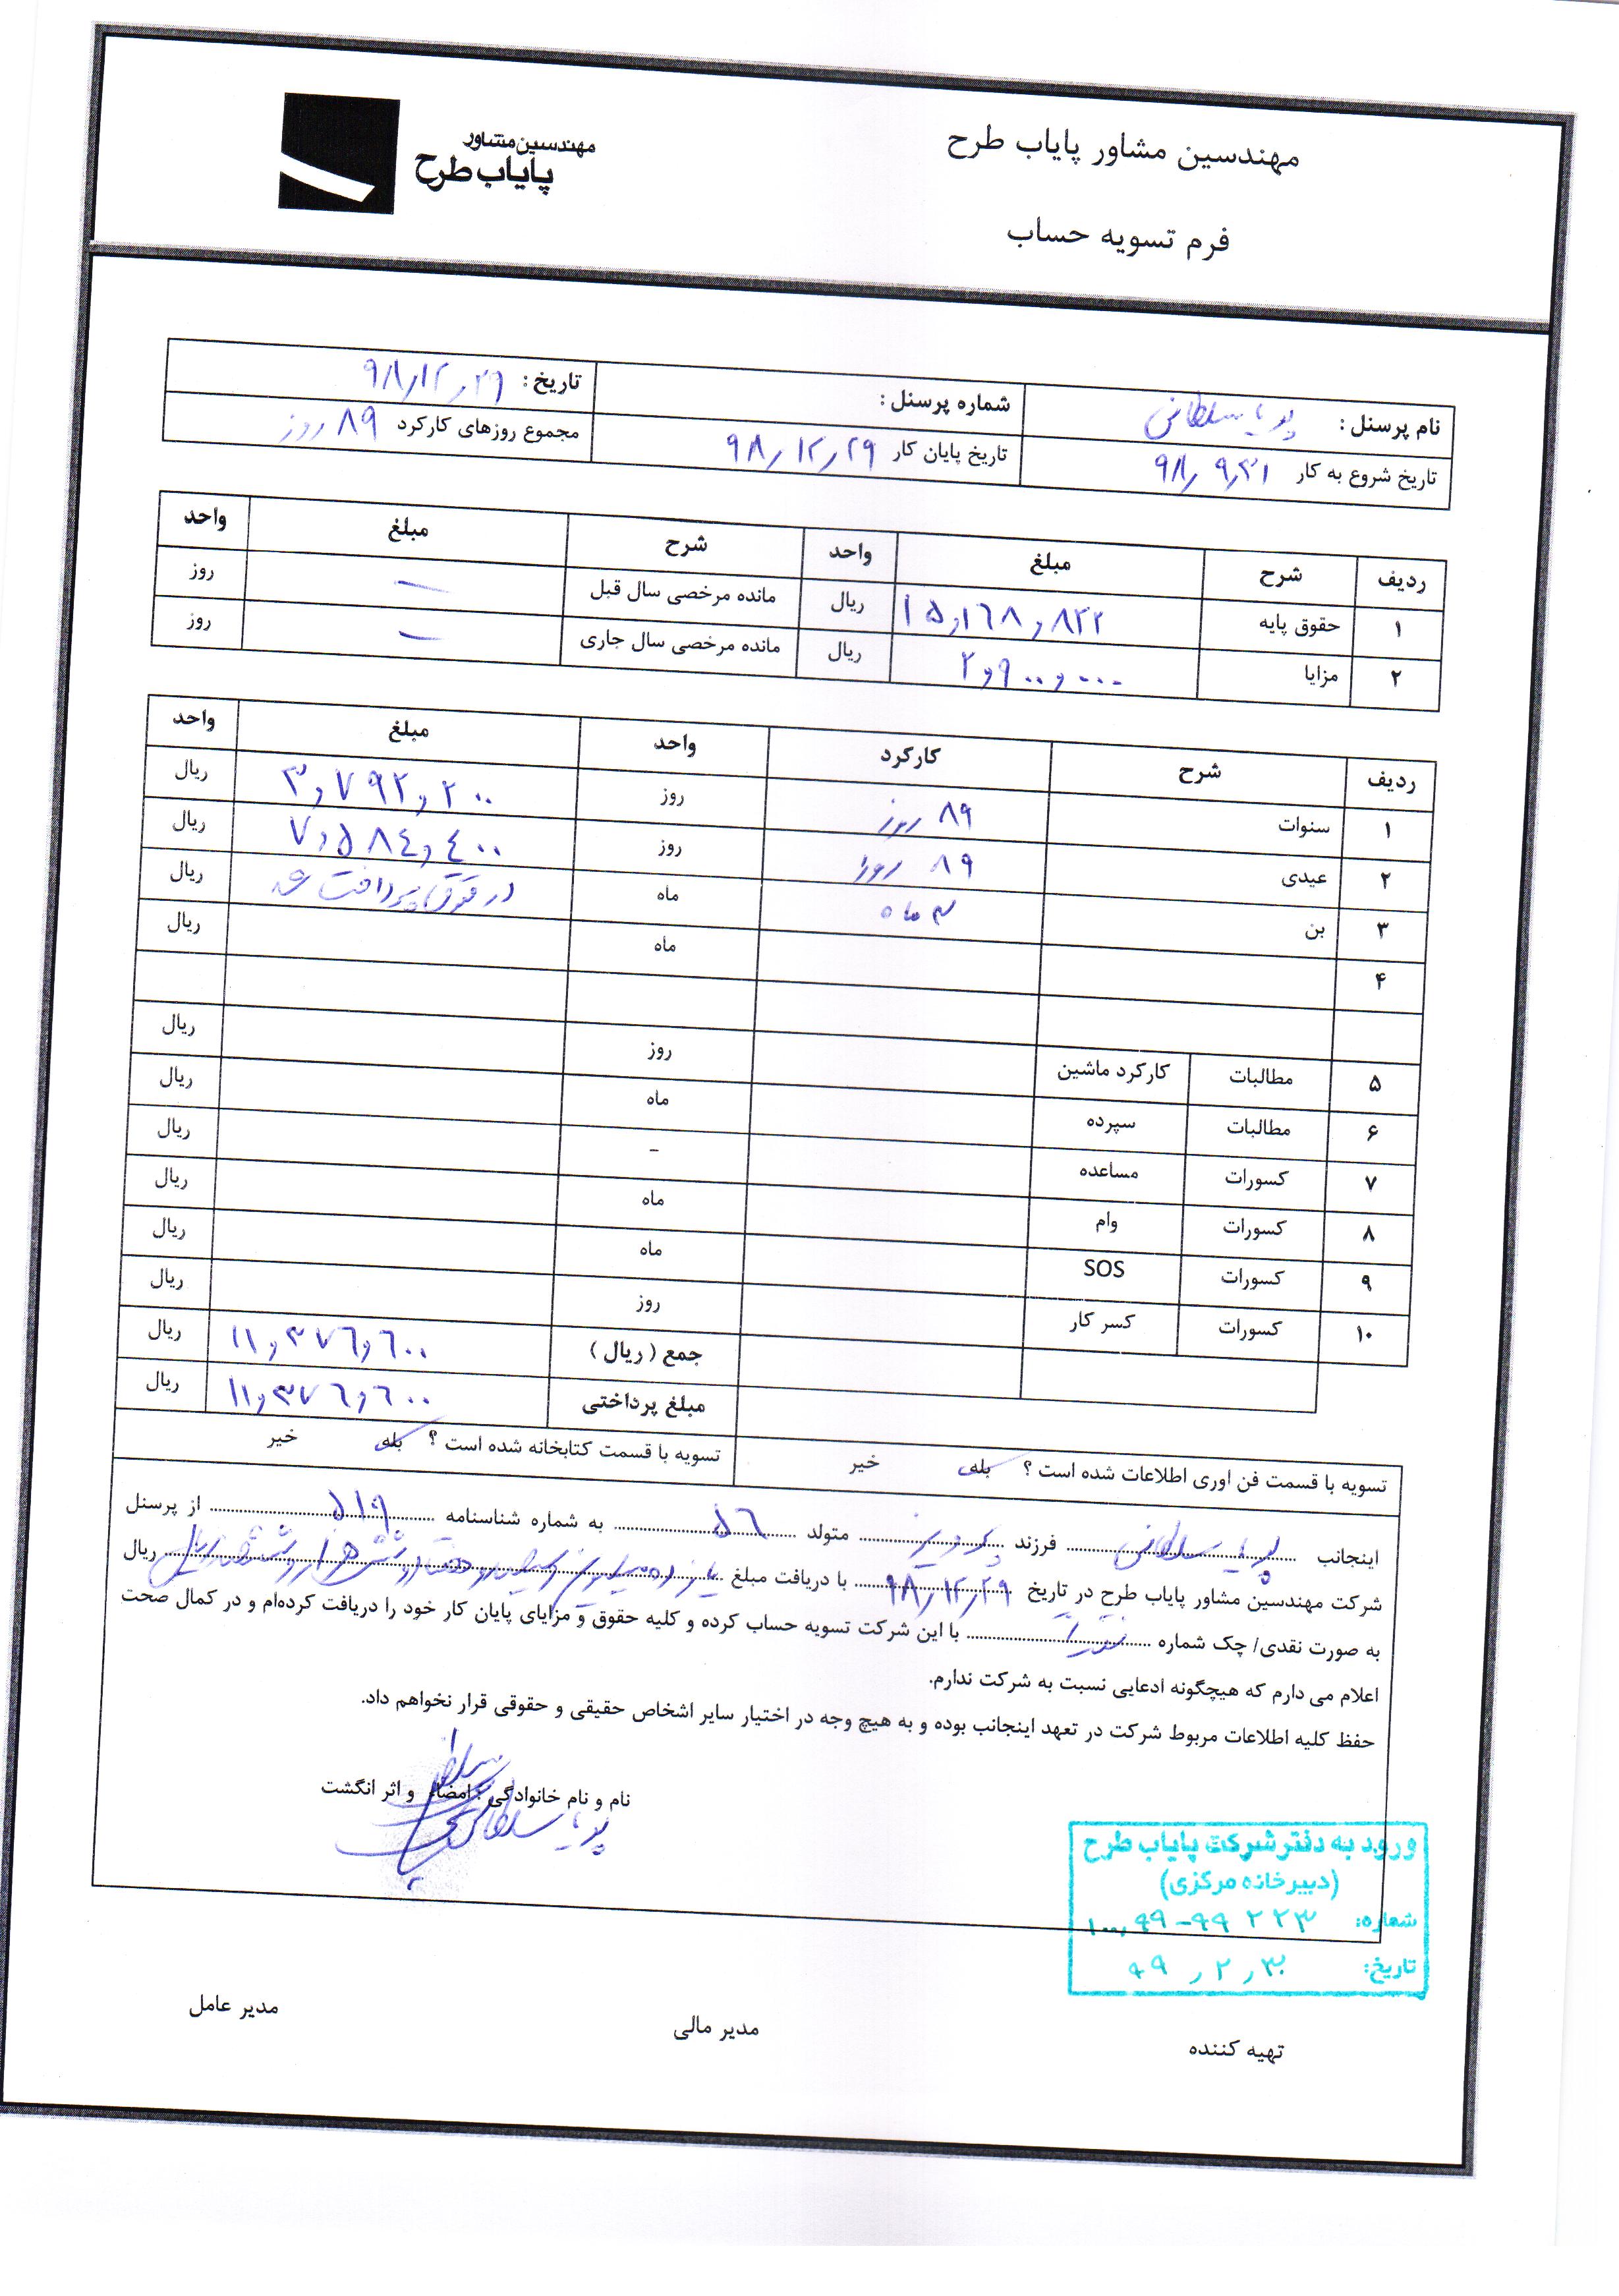 مهندسین مشاور پایاب طرح
مهندسین مشاور
پایاب طرح
فرم تسویه حساب
نام پرسنل : پویا سلطانی شماره پرسنل : تاریخ : ۹۸٫۱۲٫۲۶
تاریخ شروع به کار ۹۸٫۹٫۳۱ تاریخ پایان کار ۹۸٫۱۲٫۲۹ مجموع روزهای کارکرد ۸۹ روز
ردیف شرح مبلغ واحد شرح مبلغ واحد
۱ حقوق پایه ۱۵,۱۶۸,۸۲۲ ریال مانده مرخصی سال قبل — روز
۲ مزایا ۲,۹۰۰,۰۰۰ ریال مانده مرخصی سال جاری — روز
ردیف شرح کارکرد واحد مبلغ واحد
۱ سنوات ۸۹ روز روز ۳,۷۹۲,۲۰۰ ریال
۲ عیدی ۸۹ روز روز ۷,۵۸۴,۴۰۰ ریال
۳ بن ۳ ماه ماه در حقوق پرداخت شد ریال
۴ ماه ریال
۵ مطالبات کارکرد ماشین روز ریال
۶ مطالبات سپرده ماه ریال
۷ کسورات مساعده – ریال
۸ کسورات وام ماه ریال
۹ کسورات SOS ماه ریال
۱۰ کسورات کسر کار روز ریال
جمع ( ریال ) ۱۱,۳۷۶,۶۰۰ ریال
مبلغ پرداختی ۱۱,۳۷۶,۶۰۰ ریال
تسویه با قسمت فن اوری اطلاعات شده است ؟ بله خیر تسویه با قسمت کتابخانه شده است ؟ بله خیر
اینجانب پویا سلطانی فرزند پرویز متولد ۵۶ به شماره شناسنامه ۵۱۹ از پرسنل
شرکت مهندسین مشاور پایاب طرح در تاریخ ۹۸٫۱۲٫۲۹ با دریافت مبلغ یازده میلیون و سیصد و هفتاد و شش هزار و ششصد ریال ریال
به صورت نقدی/ چک شماره نقداً با این شرکت تسویه حساب کرده و کلیه حقوق و مزایای پایان کار خود را دریافت کرده‌ام و در کمال صحت
اعلام می دارم که هیچگونه ادعایی نسبت به شرکت ندارم.
حفظ کلیه اطلاعات مربوط شرکت در تعهد اینجانب بوده و به هیچ وجه در اختیار سایر اشخاص حقیقی و حقوقی قرار نخواهم داد.
نام و نام خانوادگی : امضاء و اثر انگشت
پویا سلطانی
ورود به دفتر شرکت پایاب طرح
(دبیرخانه مرکزی)
شماره: ۱۰۰٫۹۹-۹۹ ۲۲۳
تاریخ: ۹۹٫۲٫۳۰
تهیه کننده مدیر مالی مدیر عامل